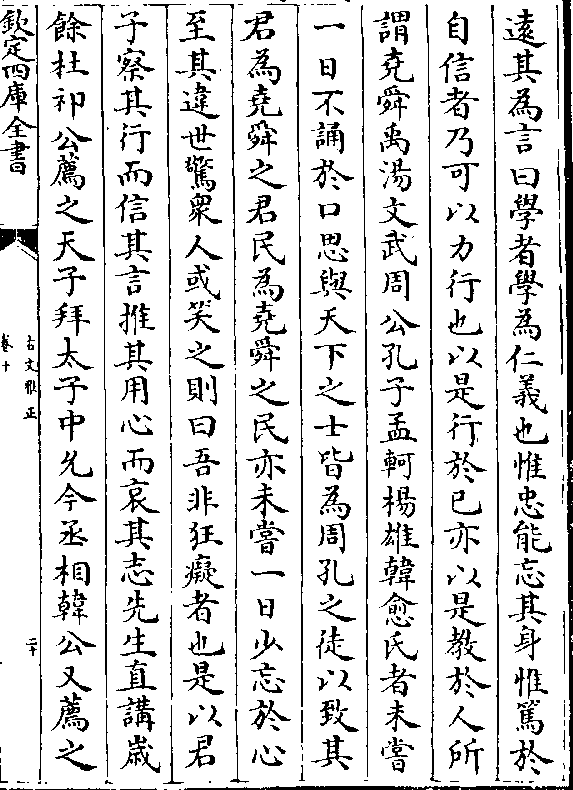 遠其為言曰學者學為仁義也惟忠能忘其身惟篤於
自信者乃可以力行也以是行於已亦以是教於人所
謂堯舜禹湯文武周公孔子孟軻楊雄韓愈氏者未嘗
一日不誦於口思與天下之士皆為周孔之徒以致其
君為堯舜之君民為堯舜之民亦未嘗一日少忘於心
至其違世驚衆人或笑之則曰吾非狂癡者也是以君
子察其行而信其言推其用心而哀其志先生直講嵗
餘杜祁公薦之天子拜太子中允今丞相韓公又薦之
欽定四庫全書
古文雅正
卷十
二十